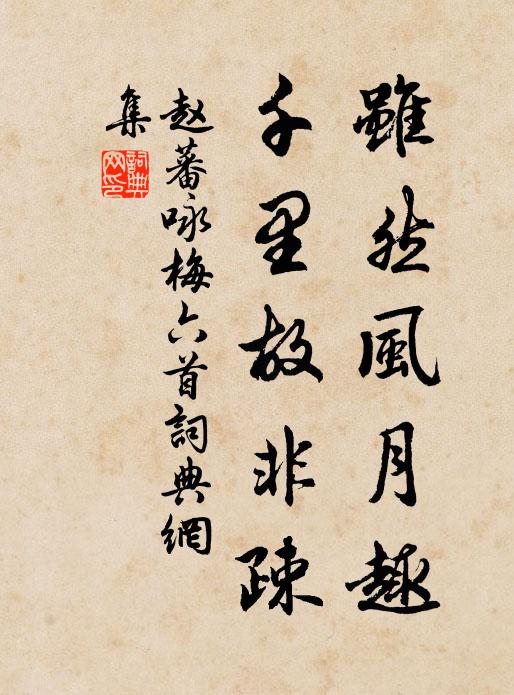 雖然風月趣
千里故非疎
赵蕃咏梅六首詞典網
集
詞典
网印